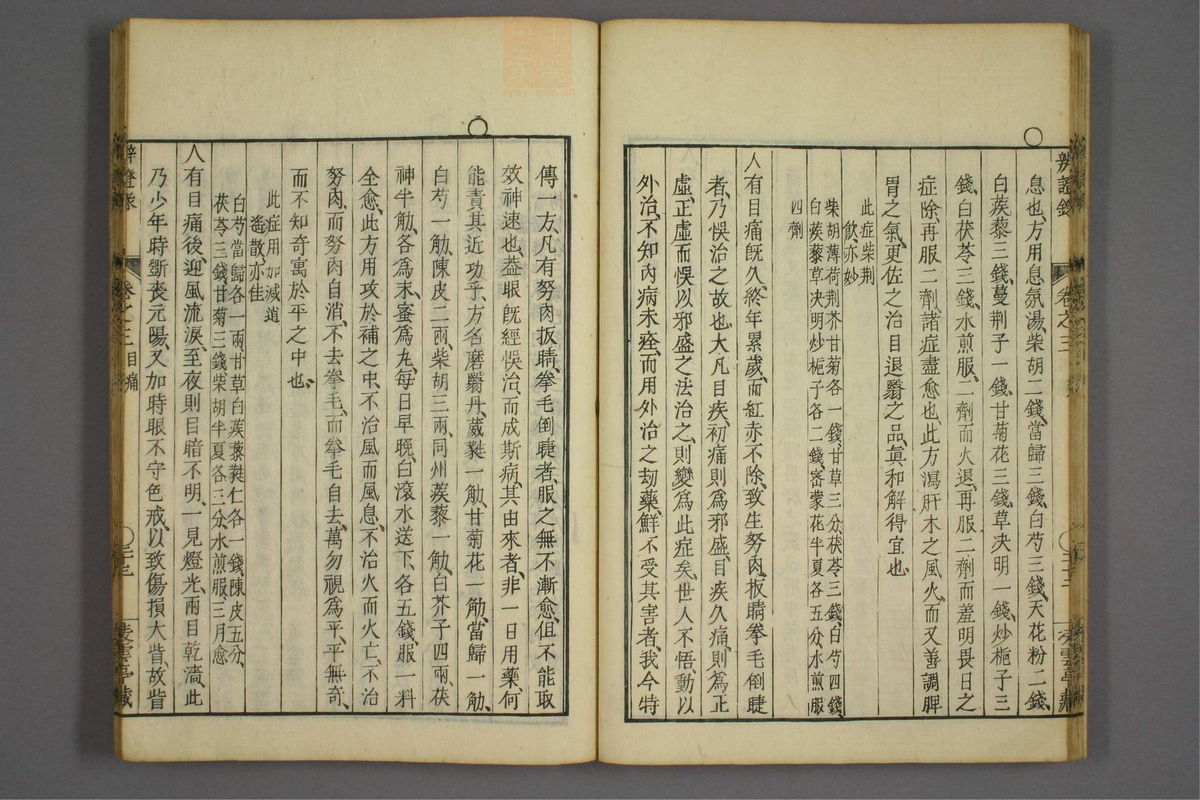 息也、方用息氛湯、柴胡二錢、當歸三錢、白芍三錢、天花粉二錢、
白蒺藜三錢、蔓荆子一錢、甘菊花三錢、草決明一錢、炒梔子三
錢、白茯苓三錢、水煎服、二劑而火退、再服二劑而羞明畏日之
症除、再服二劑、諸症盡愈也、此方瀉肝木之風火、而又善調脾
胃之氣、更佐之治目退翳之品、眞和解得宜也
此症柴荆
飲亦妙
柴胡薄荷荆芥甘菊各一錢、甘草三分、茯苓三錢、白芍四錢、
白蒺藜草決明炒梔子各二錢、密蒙花半夏各五分、水煎服
四劑
人有目痛既久、終年累歲、而紅赤不除、致生努肉、扳睛、拳毛倒睫
者、乃悞治之故也、大凡目疾、初痛則爲邪盛、目疾久痛、則爲正
虛、正虛而悞以邪盛之法治之、則變爲此症矣、世人不悟、動以
外治、不知內病未痊、而用外治之刼藥、鮮不受其害者、我今特
傳一方、凡有努肉扳睛、拳毛倒睫者、服之無不漸愈、但不能取
效神速也、葢眼既經悞治、而成斯病、其由來者、非一日、用藥何
能責其近功乎、方名磨翳丹、葳蕤一觔、甘菊花一觔、當歸一觔、
白芍一觔、陳皮二兩、柴胡三兩、同州蒺藜一觔、白芥子四兩、茯
神半觔、各爲末、蜜爲丸、每日早晚、白滾水送下、各五錢、服一料
全愈、此方用攻於補之中、不治風而風息、不治火而火亡、不治
努肉、而努肉自消、不去拳毛、而拳毛自去、萬勿視爲平平無奇、
而不知奇寓於平之中也、
此症用加減逍
遙散亦佳
白芍當歸各一兩、甘草白蒺藜蕤仁各一錢、陳皮五分、
茯苓三錢、甘菊三錢、柴胡半夏各三分、水煎服三月愈
人有目痛後、迎風流淚、至夜則目暗不明、一見燈光、兩目乾濇、此
乃少年時斲喪元陽、又加時眼不守色戒、以致傷損大眥、故眥
辨證錄
卷之三
辨證錄
卷之三 目痛